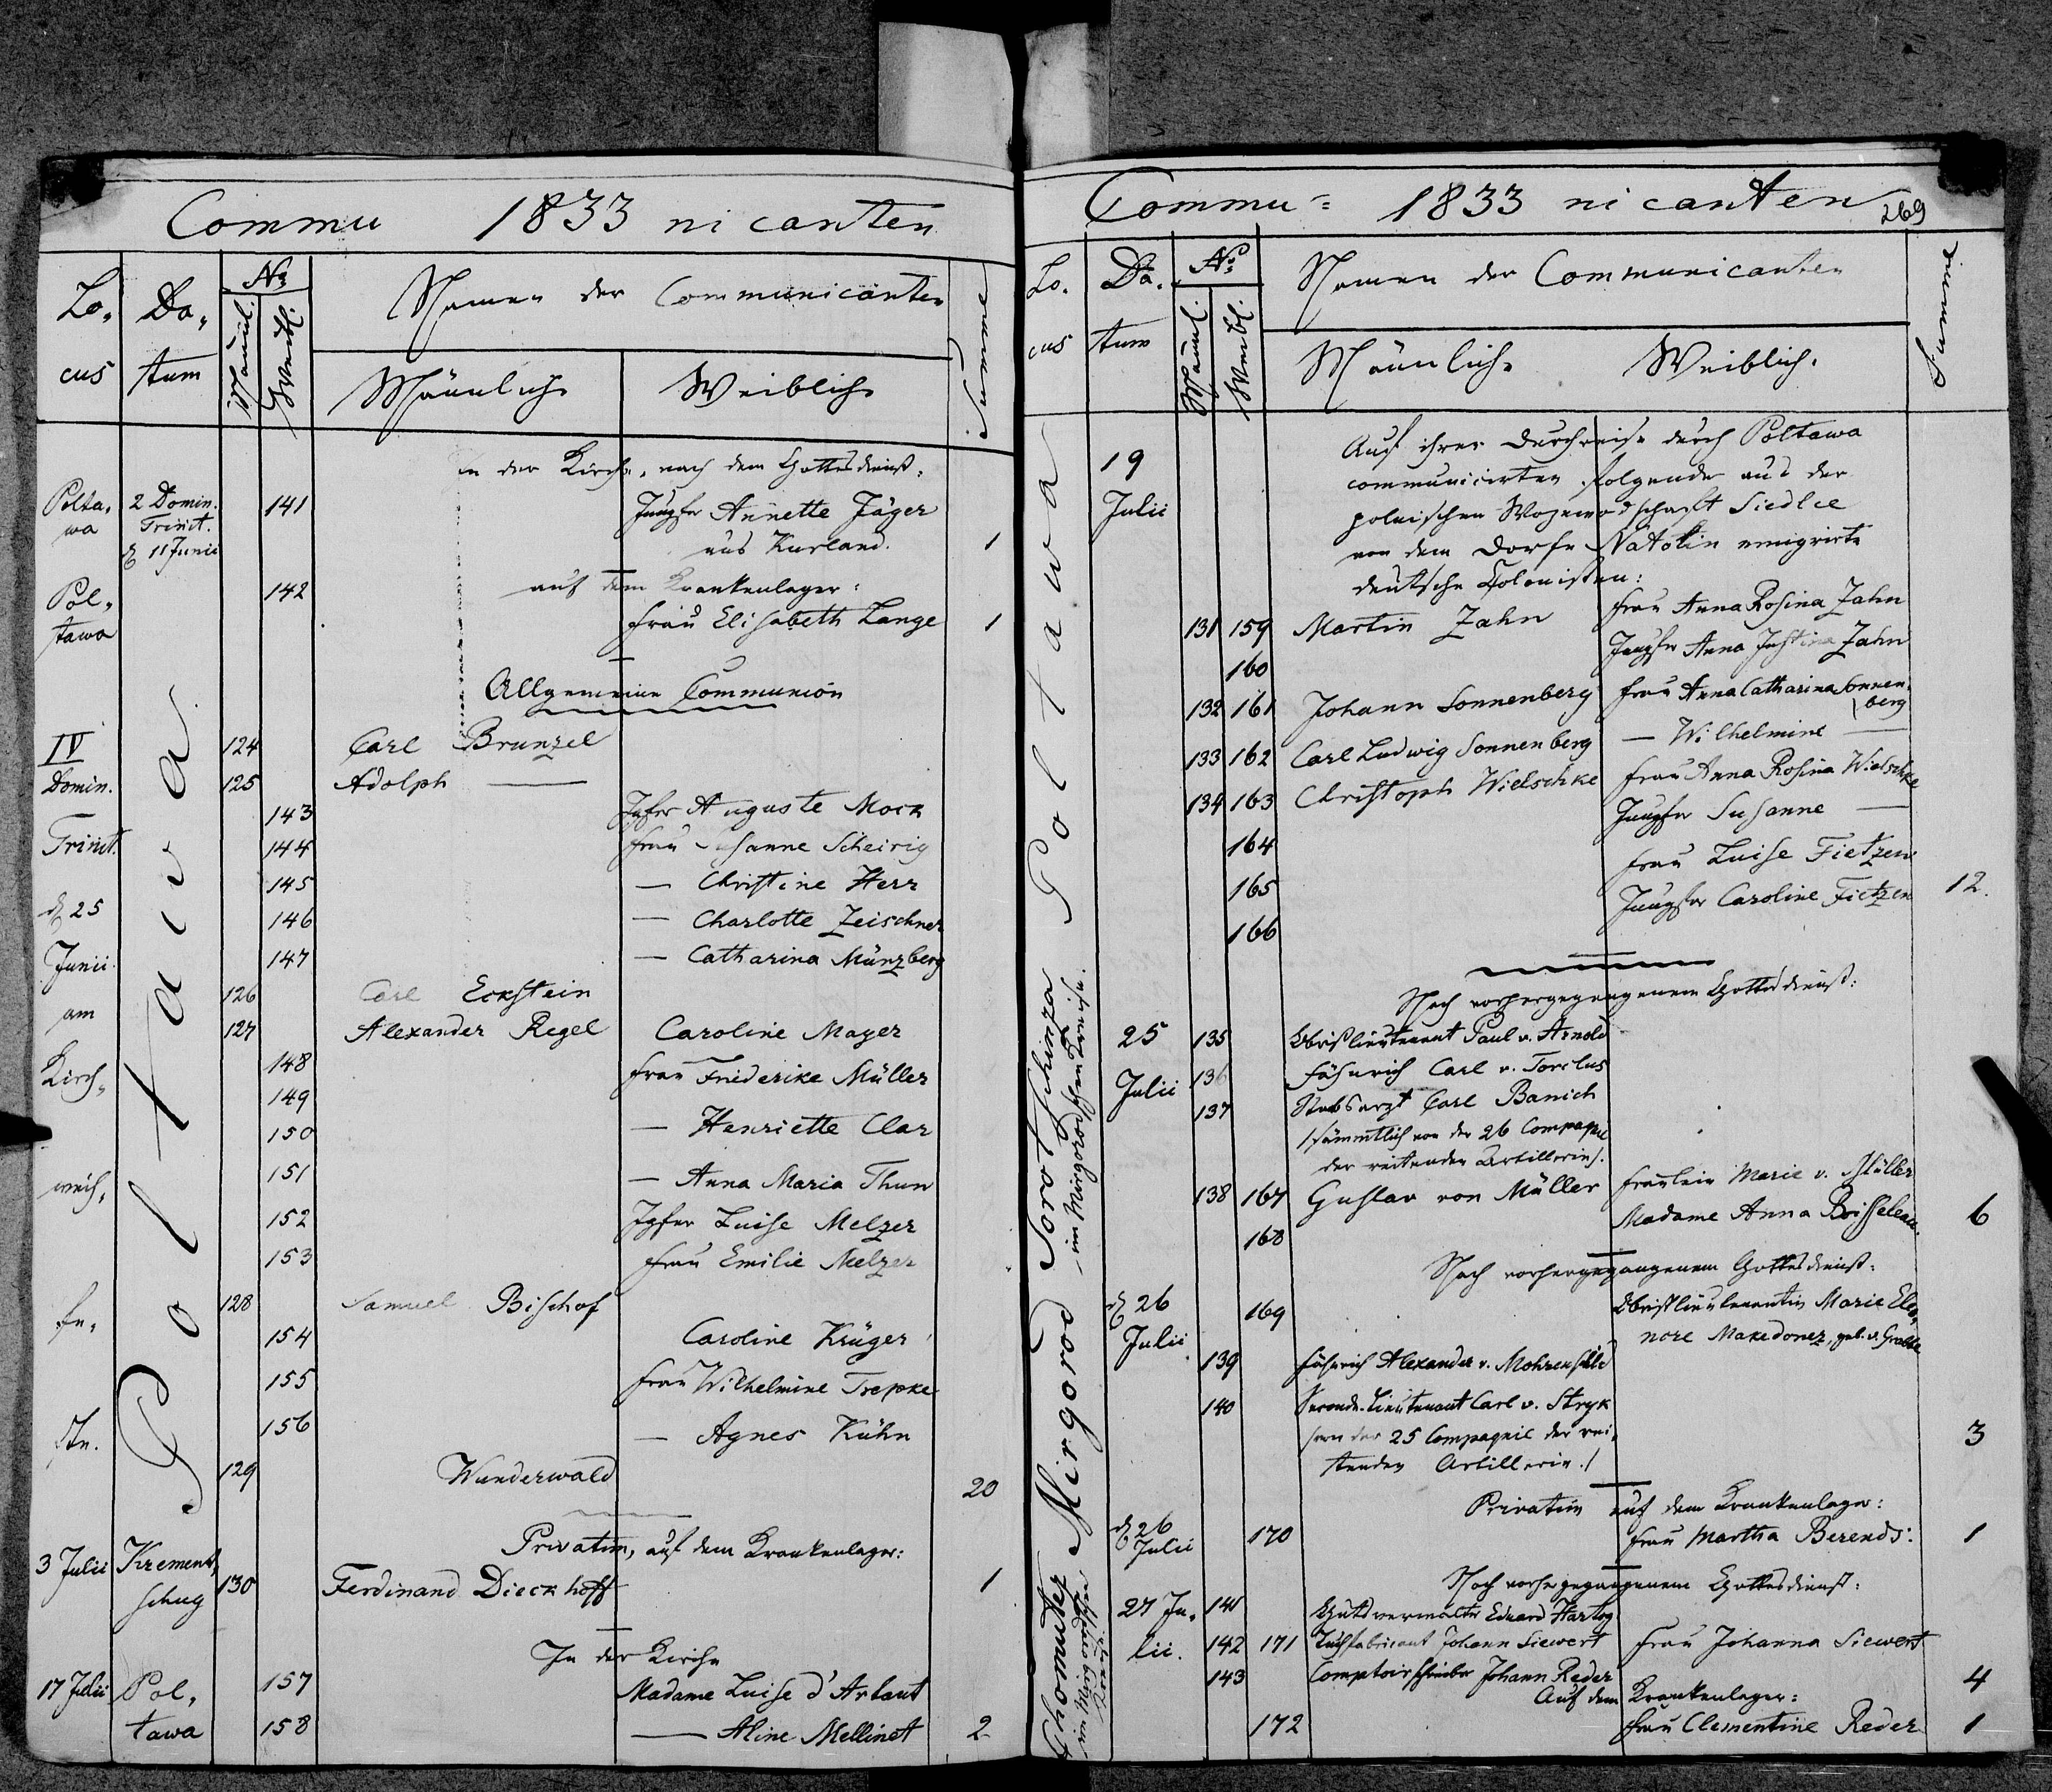 Commu 1833 nicanten
Lo- Da- No. Namen der Communicanten Summe
cus tum Männl. Weibl. Männliche Weibliche
in der Kirche, nach dem Gottesdienst:
Polta- 2 Domin. 141 Jungfer Annette Jäger
wa Trinit.
d 11 Junii aus Kurland. 1
Pol- 142 auf dem Krankenlager:
tawa Frau Elisabeth Lange 1
Allgemeine Communion
Poltawa
IV 124 Carl Brunzel
Domin. 125 Adolph —
143 Jgfer Auguste Mock
Trinit. 144 Frau Susanne Scheirig
145 — Christine Herr
d 25 146 — Charlotte Zeischner
Junii 147 — Catharina Münzberg
126 Carl Eckstein
am 127 Alexander Regel Caroline Mayer
Kirch- 148 Frau Friderike Müller
149
150 — Henriette Clar
weih- 151 — Anna Maria Thun
152 Jgfer Luise Melzer
153 Frau Emilie Melzer
fe- 128 Samuel Bischof
154 Caroline Krüger
155 Frau Wilhelmine Trepke
ste. 156 — Agnes Kühn
129 Wunderwald 20
Privatim, auf dem Krankenlager:
3 Julii Krement-
schug 130 Ferdinand Dieckhoff 1
In der Kirche
17 Julii Pol- 157 Madame Luise d'Artaut
tawa 158 — Aline Mellinet 2
Commu= 1833 nicanten 269
Lo- Da- No. Namen der Communicanten Summe
cus tum Männl. Weibl. Männliche Weibliche
Poltawa
19 Auf ihrer Durchreise durch Poltawa
Julii communicirten folgende aus der
polnischen Wojewodschaft Siedlce
von dem Dorfe Natolin emigrirte
deutsche Colonisten:
131 159 Martin Zahn Frau Anna Rosina Zahn
160 Jungfer Anna Justina Zahn
132 161 Johann Sonnenberg Frau Anna Catharina Sonnen-
berg
133 162 Carl Ludwig Sonnenberg — Wilhelmine —
134 163 Christoph Wielschke Frau Anna Rosina Wielschke
164 Jungfer Susanne —
165 Frau Luise Fietzen
166 Jungfer Caroline Fietzen 12.
Sorotschinza
im Mirgorodschen Kreise.
Nach vorhergegangenem Gottesdienst:
25 135 Obristlieutenant Paul v. Arnold
Julii 136 Fähnrich Carl v. Torclus
137 Stabsarzt Carl Banich
(sämmtlich von der 26 Compagnie
der reitenden Artillerie).
138 167 Gustav von Müller Fraulein Marie v. Müller
168 Madame Anna Boisseleau. 6
Mirgorod
Nach vorhergegangenem Gottesdienst:
d 26 169 Obristlieutenantin Marie Eleo-
Julii nore Makedonez, geb. v. Grabbe
139 Fähnrich Alexander v. Mohrenschild
140 Seconde-Lieutenant Carl v. Stryk
(von der 25 Compagnie der rei- 3
tenden Artillerie.)
Privatim auf dem Krankenlager:
d 26
Julii 170 Frau Martha Berends: 1
Chomutez
im Mirgorodschen
Kreise.
Nach vorhergegangenem Gottesdienst:
27 Ju- 141 Gutsverwalter Eduard Hartog
lii. 142 171 Tuchfabricant Johann Siewert Frau Johanna Siewert
143 Comptoirschreiber Johann Reder 4
Auf dem Krankenlager:
172 Frau Clementine Reder 1